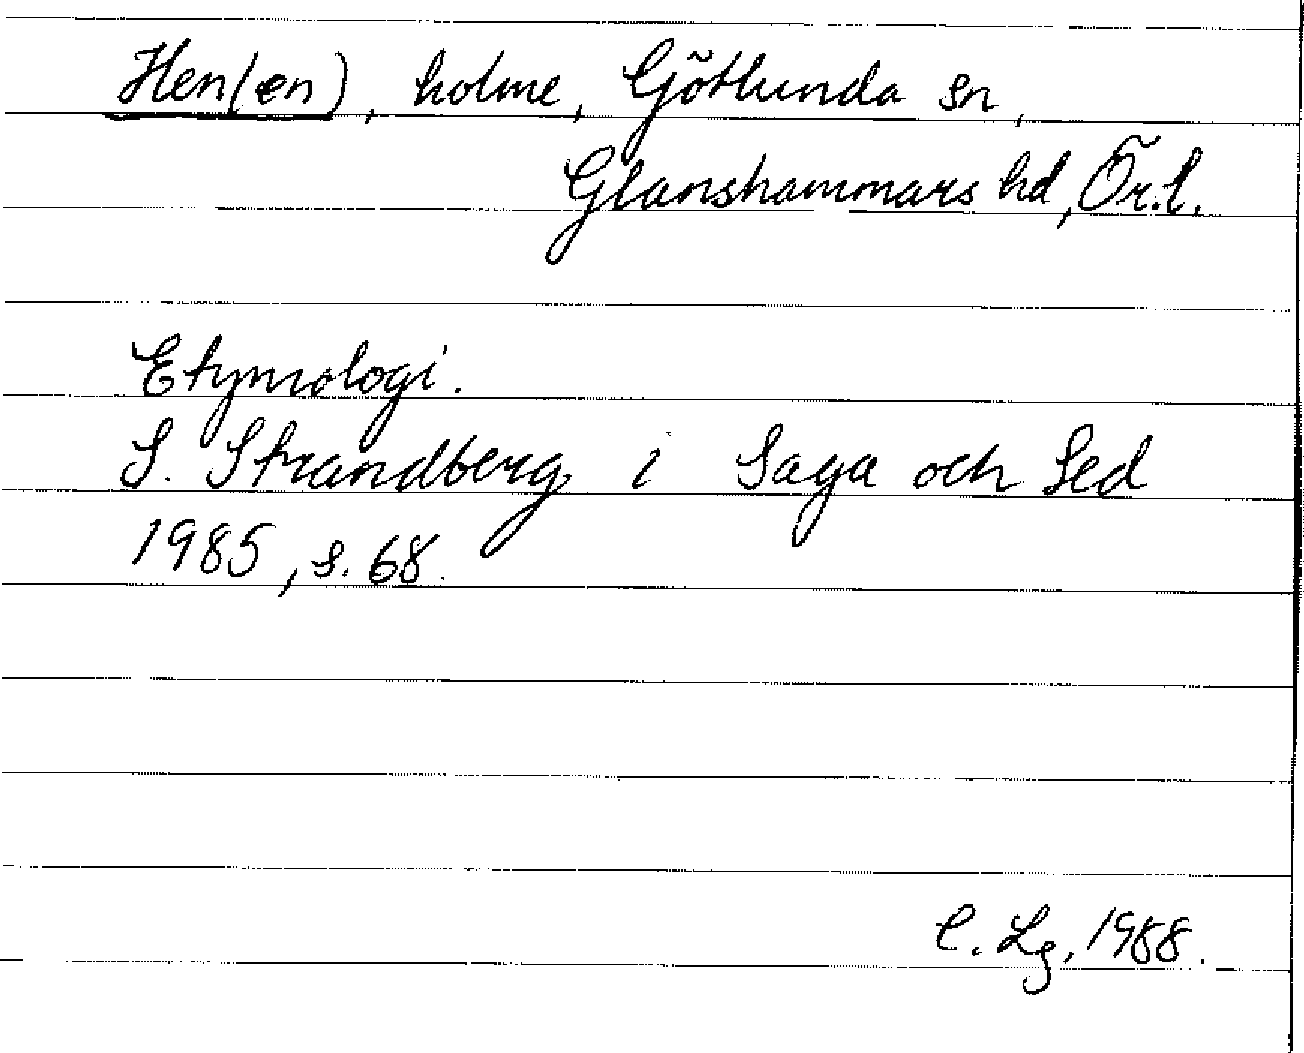 Hen(en), holme, Götlunda sn,
Glanshammars hd, Ör.l.
Etymologi.
S. Strandberg i Saga och Sed
1985, s. 68.
C. Lg, 1988.